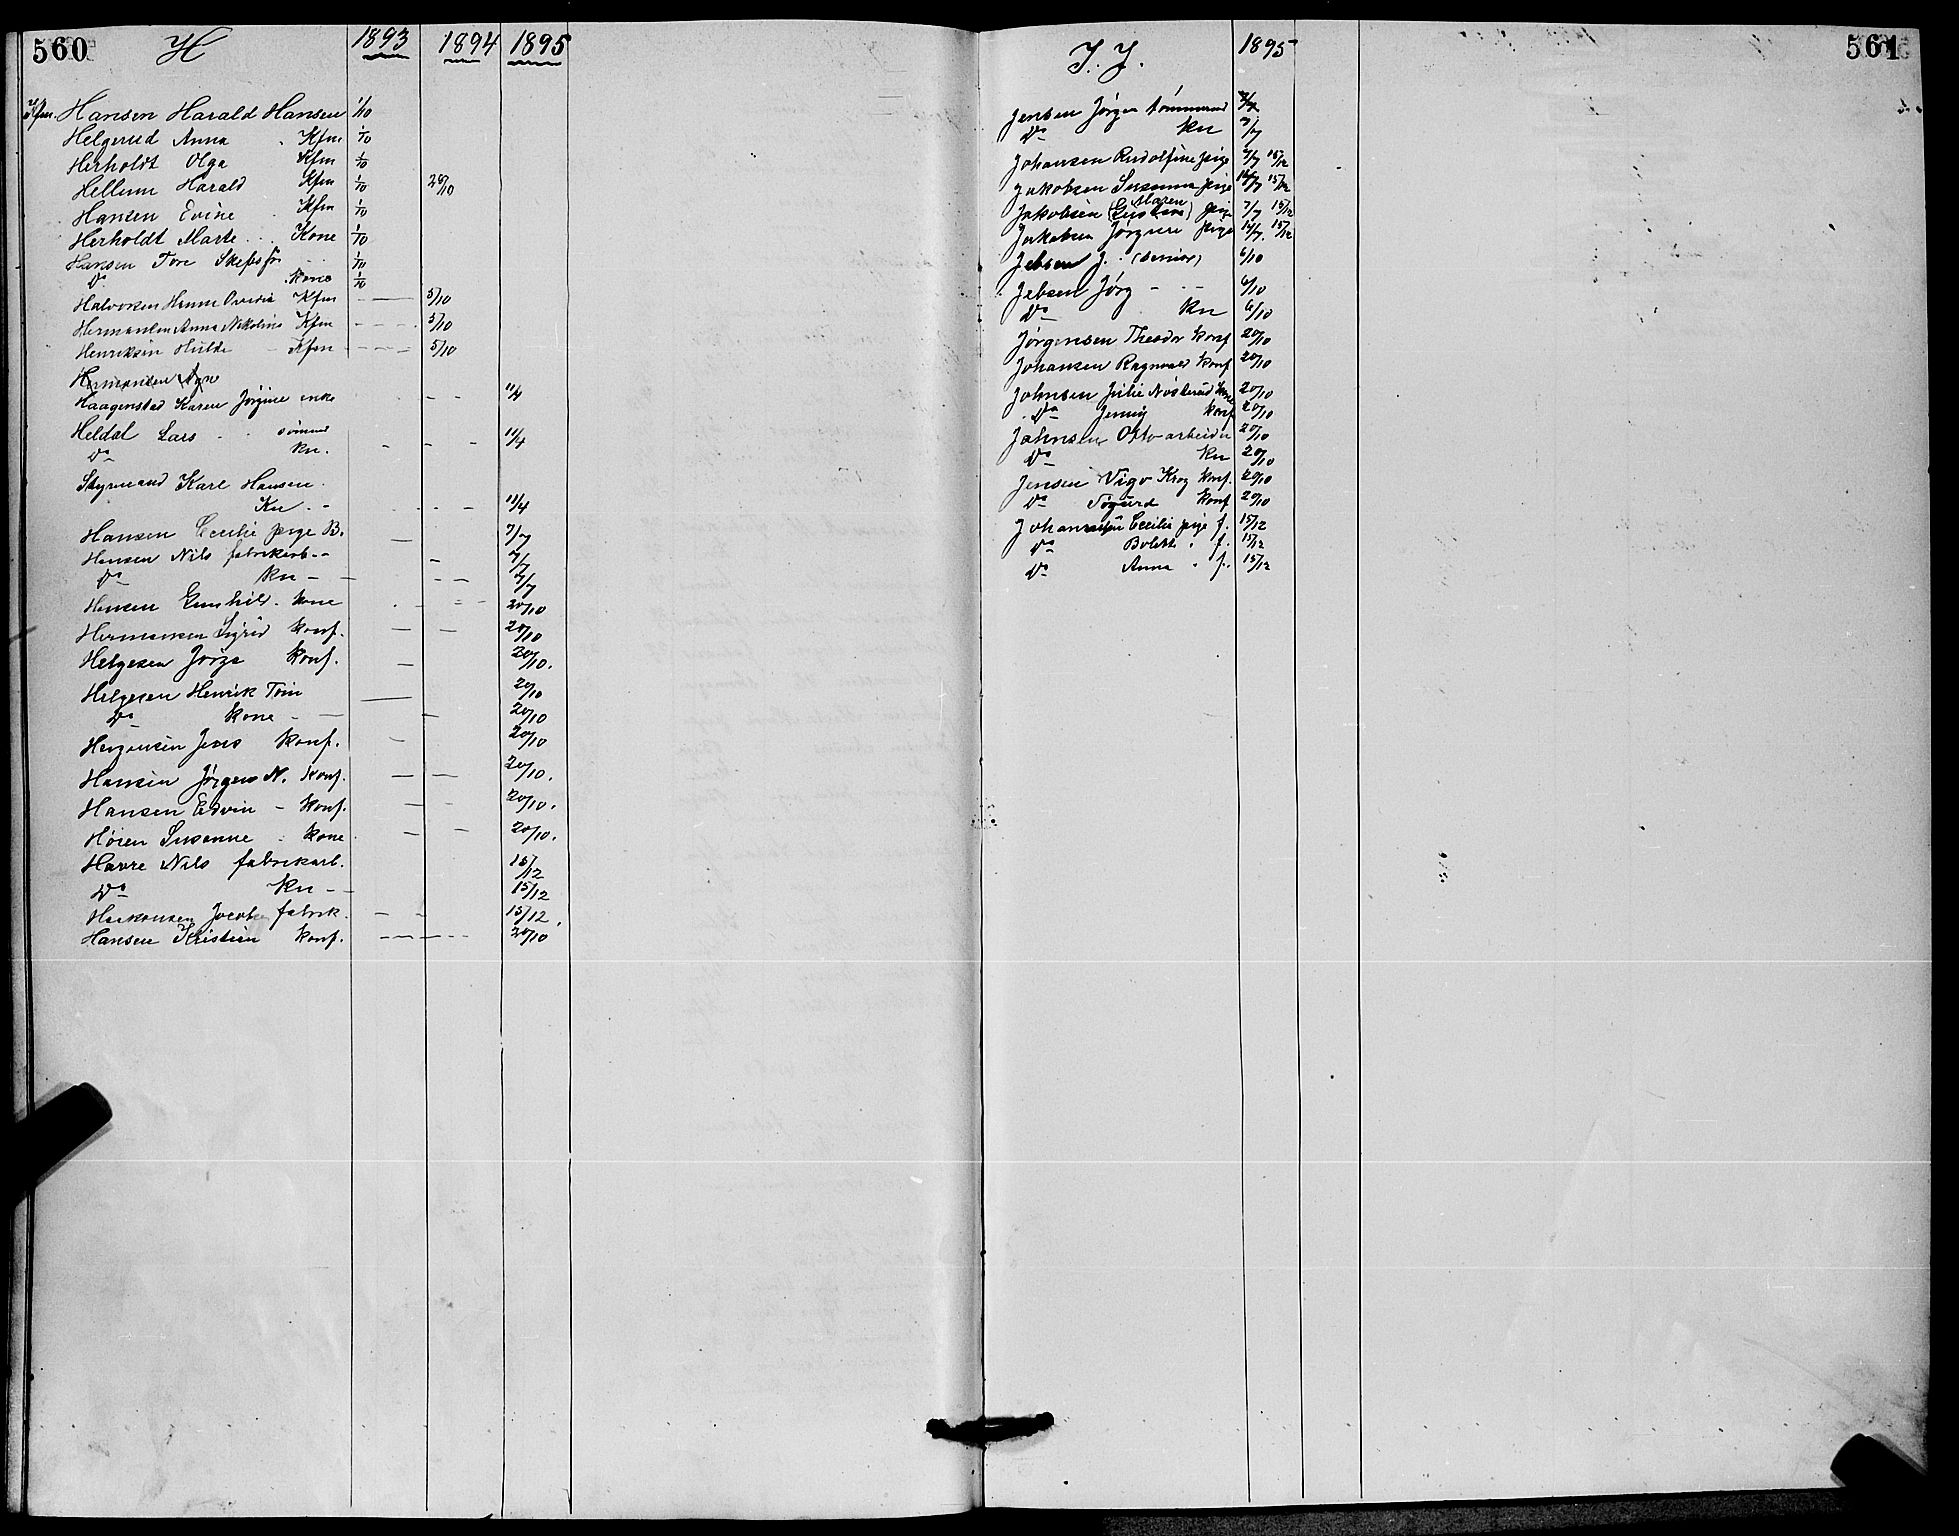 560 H 1893 1894 1895
Kfm. Hansen Harald Hansen 1/10
Helgerud Anna . Kfm 1/10
Herholdt Olga Kfm 1/10
Hellum Harald Kfm 1/10 28/10
Hansen Evine Kfm 1/10
Herholdt Marte . . Kone 1/10
Hansen Tore Skibsfr 1/10
Do . Kone 1/10
Halvorsen Hanna Ovedia Kfm - — 5/10
Hermansen Anna Nikoline Kfm - - - . 5/10
Henriksen Hulda - Kfm - - - 5/10
Hermansen
Haagenstad Karen Jørgine enke - - 11/4
Heldal Lars - - sømand - - - 11/4
Do kn.
Styrmand Karl Hansen.
Kn . - . . - 11/4
Hansen Cecilie pige B. — 7/7
Hansen Nils fabrikarb. - - - 7/7
Do kn - — - - 7/7
Hansen Gunhild . kone . - - - 20/10
Hermansen Sigrid konf. — — 20/10
Helgesen Jørgs konf. — 20/10.
Helgesen Henrik Tøm — 20/10
Do kone - — — 20/10
Jens konf. - 20/10
Hansen Jørgen N. konf. — — 20/10.
Hansen Edvin - konf. — - 20/10.
Høien Susanne . kone . — - 20/10.
Havre Nils fabrikarb. 15/12
Do kn - - 15/12
Haakonsen Jacob fabrik. - - 15/12
Hansen Kristian konf. - - - - - 20/10
I. J. 1895 561
Jensen Jørgen tømmermd 7/7
Do kn 7/7
Johansen Rudolfine pige 7/7 15/12
Jakobsen Susanna pige 14/7 15/12
Maren
Jakobsen (Gustava) pige 7/7 15/12
Jakobsen Jørgine pige 14/7. 15/12
Jebsen J. . (senior) 6/10
Jebsen Jørg - - - 6/10
Do kn 6/10
Jørgensen Theodor konf 20/10
Johansen Ragnvald konf 20/10
Johnsen Julie Nøsterud kone 20/10
Do Jenny konf 20/10
Johnsen Otto arbeider 20/10
Do kn 20/10
Jensen Vigo Krog konf. 20/10
Do Sigurd konf 20/10
Cecilie pige f. 15/12
Do Bolette . f. 15/12
Do Anna . f. 15/12